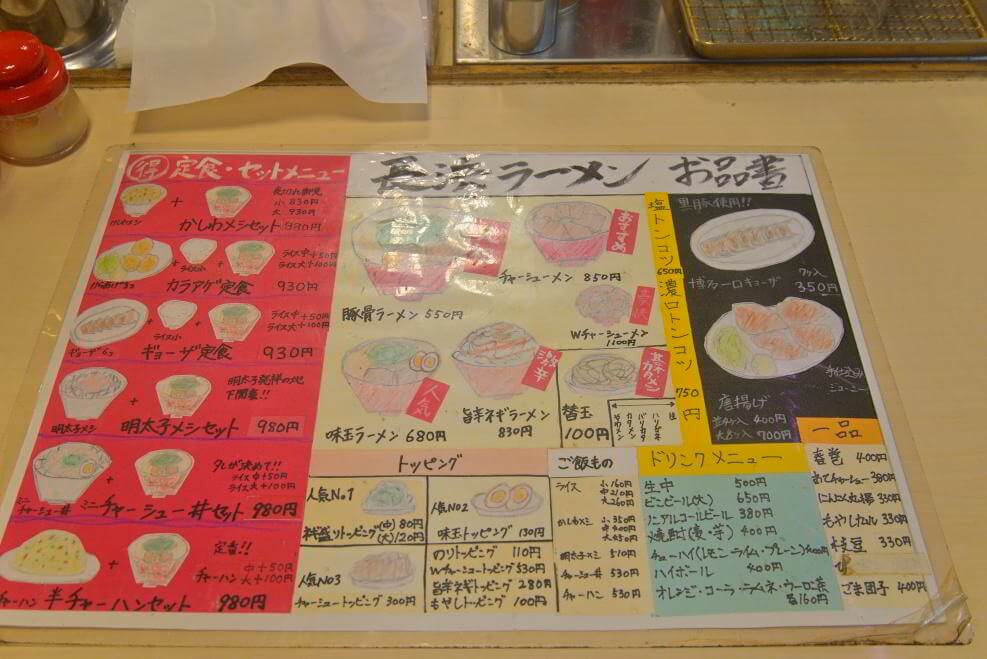 得 定食・セットメニュー
小 830円
大 930円
かしわメシセット 880円
ライス中+50円
ライス大+100円
ライス小
カラアゲ定食 930円
ライス中+50円
ライス大+100円
ライス小
ギョーザ6コ
ギョーザ定食 930円
明太子発祥の地
下関産!!
明太子メシ
明太子メシセット 980円
タレが決めて!!
ライス中+50円
ライス大+100円
ミニ
チャーシュー丼
ミニチャーシュー丼セット 980円
定番!!
中+50円
大+100円
チャーハン
チャーハン
半チャーハンセット 980円
長浜ラーメン お品書
豚骨ラーメン 550円
おすすめ
チャーシューメン 850円
Wチャーシューメン
1100円
人気
味玉ラーメン 680円
激辛
旨辛ネギラーメン
830円
基本カタメン
替玉
100円
ハリガネ
バリカタ
カタメン
塩トンコツ 650円
濃口トンコツ 750円
黒豚使用!!
博多一口ギョーザ
7ケ入
350円
手仕込み
ジューシー
唐揚げ
並4ケ入 400円
大8ケ入 700円
トッピング
人気No.1
ネギ盛りトッピング(中)80円
(大)120円
人気No2
味玉トッピング 130円
人気No3
チャーシュートッピング 300円
のりトッピング 110円
Wチャーシュートッピング 530円
旨辛ネギトッピング 280円
もやしトッピング 100円
ご飯もの
ライス 小160円
中210円
大260円
かしわメシ 小350円
中400円
大450円
明太子メシ 510円
チャーシュー丼 530円
チャーハン 530円
ドリンクメニュー
生中 500円
ビンビール(大) 650円
ノンアルコールビール 380円
焼酎(麦・芋) 400円
チューハイ(レモン・ライム・プレーン)400円
ハイボール 400円
オレンジ・コーラ・ラムネ・ウーロン茶
各160円
一品
春巻 400円
おてチャーシュー 380円
にんにん丸揚 330円
もやしナムル 330円
枝豆 330円
ごま団子 400円